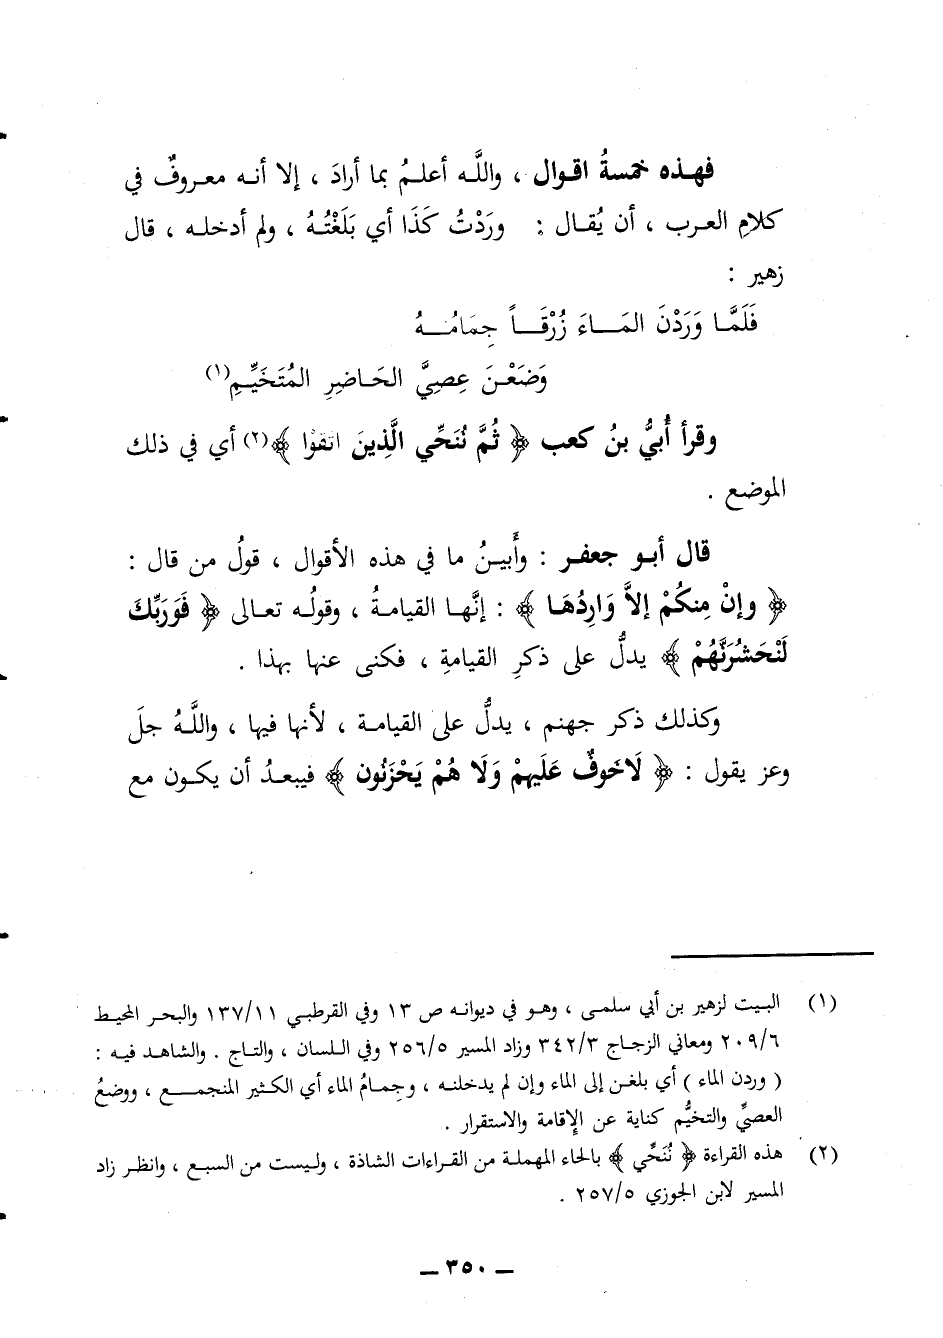 فهذه خمسةُ اقوال ، واللَّه أعلمُ بما أرادَ ، إلا أنه معروفٌ في
كلامِ العرب ، أن يُقال : ورَدْتُ كَذَا أي بَلَغْتُهُ ، ولم أدخله ، قال
زهير :
فَلَمَّا وَرَدْنَ المَاءَ زُرْقَاً جِمَامُهُ
وَضَعْنَ عِصِيَّ الحَاضِرِ المُتَخَيِّمِ(١)
وقرأ أُبيُّ بنُ كعب ﴿ ثُمَّ نُنَحِّي الَّذِينَ اتقوْا ﴾(٢) أي في ذلك
الموضع .
قال أبو جعفر : وأَبينُ ما في هذه الأقوال ، قولُ من قال :
﴿ وإنْ مِنكُمْ إلاَّ وَارِدُهَا ﴾ : إنَّها القيامةُ ، وقولُه تعالى ﴿ فَوَرَبِّكَ
لَنْحَشُرَنَّهُمْ ﴾ يدلُّ على ذكرِ القيامةِ ، فكنى عنها بهذا .
وكذلك ذكر جهنم ، يدلُّ على القيامة ، لأنها فيها ، واللَّهُ جلَ
وعز يقول : ﴿ لَاخَوفٌ عَلَيهِمْ وَلَا هُمْ يَحْزَنُون ﴾ فيبعدُ أن يكون مع
(١) البيت لزهير بن أبي سلمى ، وهو في ديوانه ص ١٣ وفي القرطبي ١٣٧/١١ والبحر المحيط
٢٠٩/٦ ومعاني الزجاج ٣٤٢/٣ وزاد المسير ٢٥٦/٥ وفي اللسان ، والتاج . والشاهد فيه :
( وردن الماء ) أي بلغن إلى الماء وإن لم يدخلنه ، وجِمامُ الماء أي الكثير المنجمع ، ووضعُ
العصيِّ والتخيُّم كناية عن الإقامة والاستقرار .
(٢) هذه القراءة ﴿ نُنَحِّي ﴾ بالحاء المهملة من القراءات الشاذة ، وليست من السبع ، وانظر زاد
المسير لابن الجوزي ٢٥٧/٥ .
ــ ٣٥٠ ــ